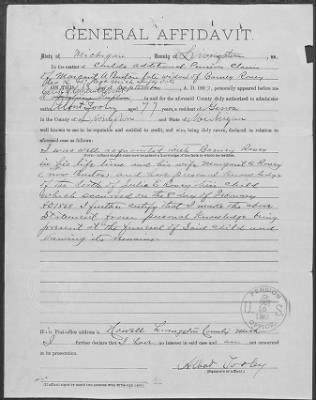 GENERAL AFFIDAVIT.
State of Michigan County of Livingston, ss.
In the matter of Childs additional Pension Claim
of Margaret A Benton late widow of Barney Roney
ON THIS day of September A. D. 188, personally appeared before
me in and for the aforesaid County duly authorized to administer
oaths Albert Tooley aged 77 years, a resident of Genoa
in the County of Livingston and State of Michigan
well known to me to be reputable and entitled to credit, and who, being duly sworn, declared in relation to
aforesaid case as follows:
I was well acquainted with Barney Roney
in his life time and his wife Margaret E Roney
(now Benton) and have personal knowledge
of the death of Julia E Roney their child
which occurred on the day of
I further certify that I make the above
Statement from personal knowledge being
present at the funeral of said child and
viewing its remains
PENSION
OFFICE
U S
Post-office address is Howell Livingston County Mich
I further declare that I have no interest in said case and am not concerned
in its prosecution.
Albert Tooley
(Signature of Affiant.)